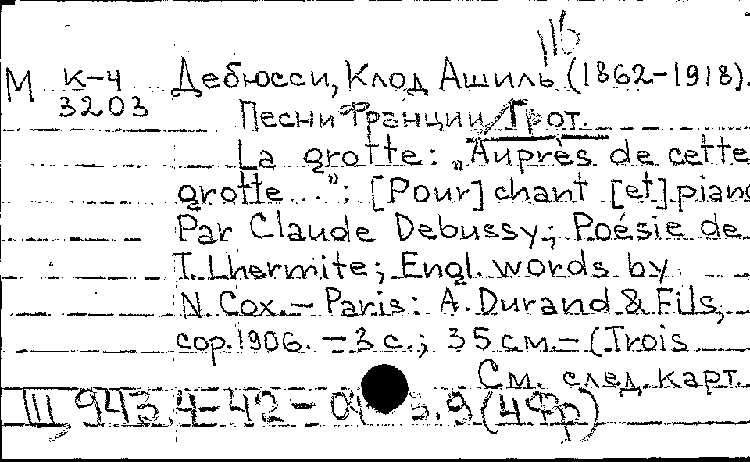 116
М К-4 Дебюсси, Клод Ашиль (1862-1918).
3203
Песни Франции Грот.
La grotte: „Auprès de cette
grotte...": [Pour] chant [et] piano
Par Claude Debussy; Poésie de
T. Lhermite; Engl. words by
N. Cox. – Paris: A. Durand & Fils,
cop. 1906. – 3 с.; 35 см. – (Trois
См. след. карт.
III, 943 4-42-